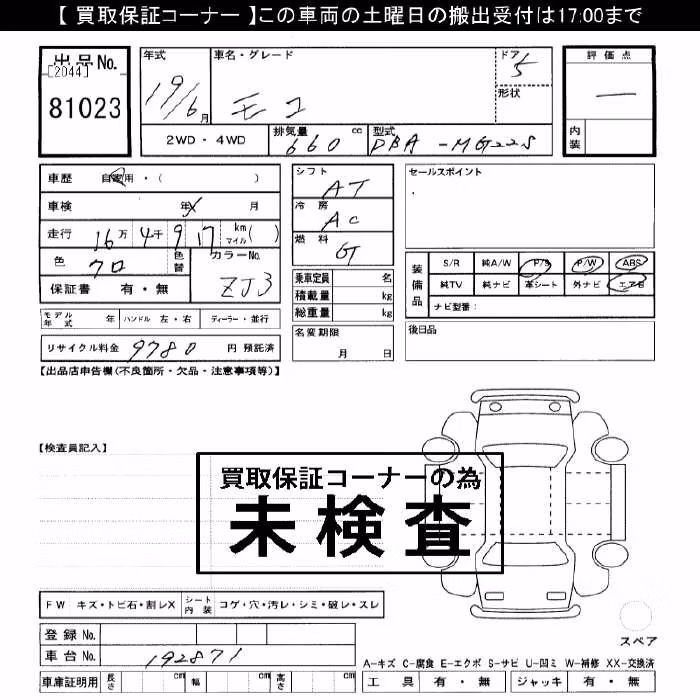 【 買取保証コーナー 】この車両の土曜日の搬出受付は17:00まで
出品No.
[2044]
81023
年式
19/6月
車名・グレード
モコ
ドア
5
形状
評価点
―
内装
2WD・4WD
排気量 660 cc
型式 DBA-MG22S
車歴 自家用・( )
車検 年 月
走行 16万4千917 km マイル( )
色 クロ 色替
カラーNo. ZJ3
保証書 有・無
シフト AT
冷房 AC
燃料 G
乗車定員 名
積載量 kg
総重量 kg
名変期限
月 日
セールスポイント
装備品
S/R 純A/W P/S P/W ABS
純TV 純ナビ 革シート 外ナビ エアB
ナビ型番:
後日品
モデル年式 年 ハンドル 左・右 ディーラー・並行
リサイクル料金 9780 円 預託済
【出品店申告欄(不良箇所・欠品・注意事項等)】
【検査員記入】
買取保証コーナーの為
未検査
FW キズ・トビ石・割レX シート内装 コゲ・穴・汚レ・シミ・破レ・スレ
登録No.
車台No. 192871
車庫証明用 長さ cm 幅 cm 高さ cm
スペア
A-キズ C-腐食 E-エクボ S-サビ U-凹ミ W-補修 XX-交換済
工具 有・無 ジャッキ 有・無